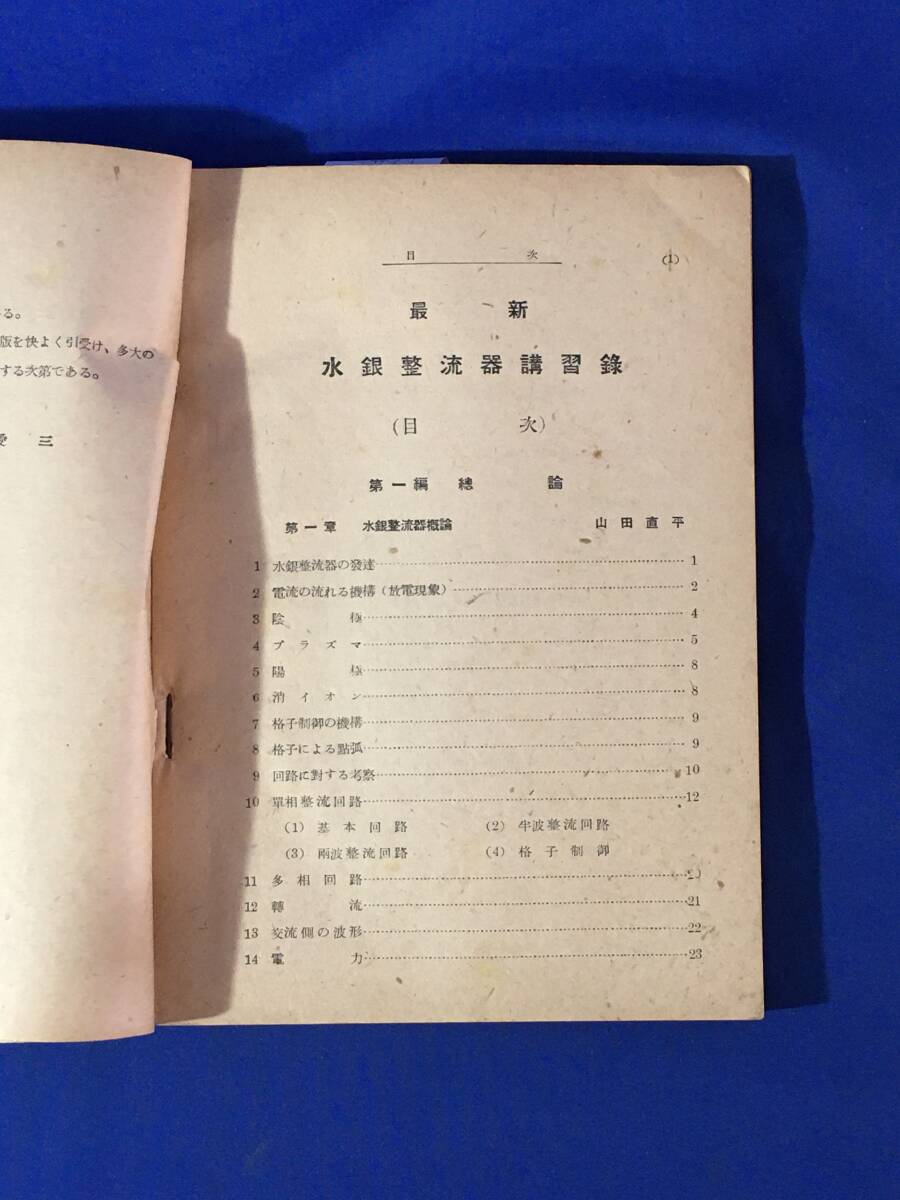 る。
版を快よく引受け、多大の
する次第である。
三
目 次 (1)
最 新
水銀整流器講習錄
(目 次)
第一編 總 論
第一章 水銀整流器概論 山田直平
1 水銀整流器の發達 1
2 電流の流れる機構(放電現象) 2
3 陰 極 4
4 プラズマ 5
5 陽 極 8
6 消イオン 8
7 格子制御の機構 9
8 格子による點弧 9
9 回路に對する考察 10
10 單相整流回路 12
(1) 基本回路 (2) 半波整流回路
(3) 兩波整流回路 (4) 格子制御
11 多相回路 20
12 轉 流 21
13 交流側の波形 22
14 電 力 23